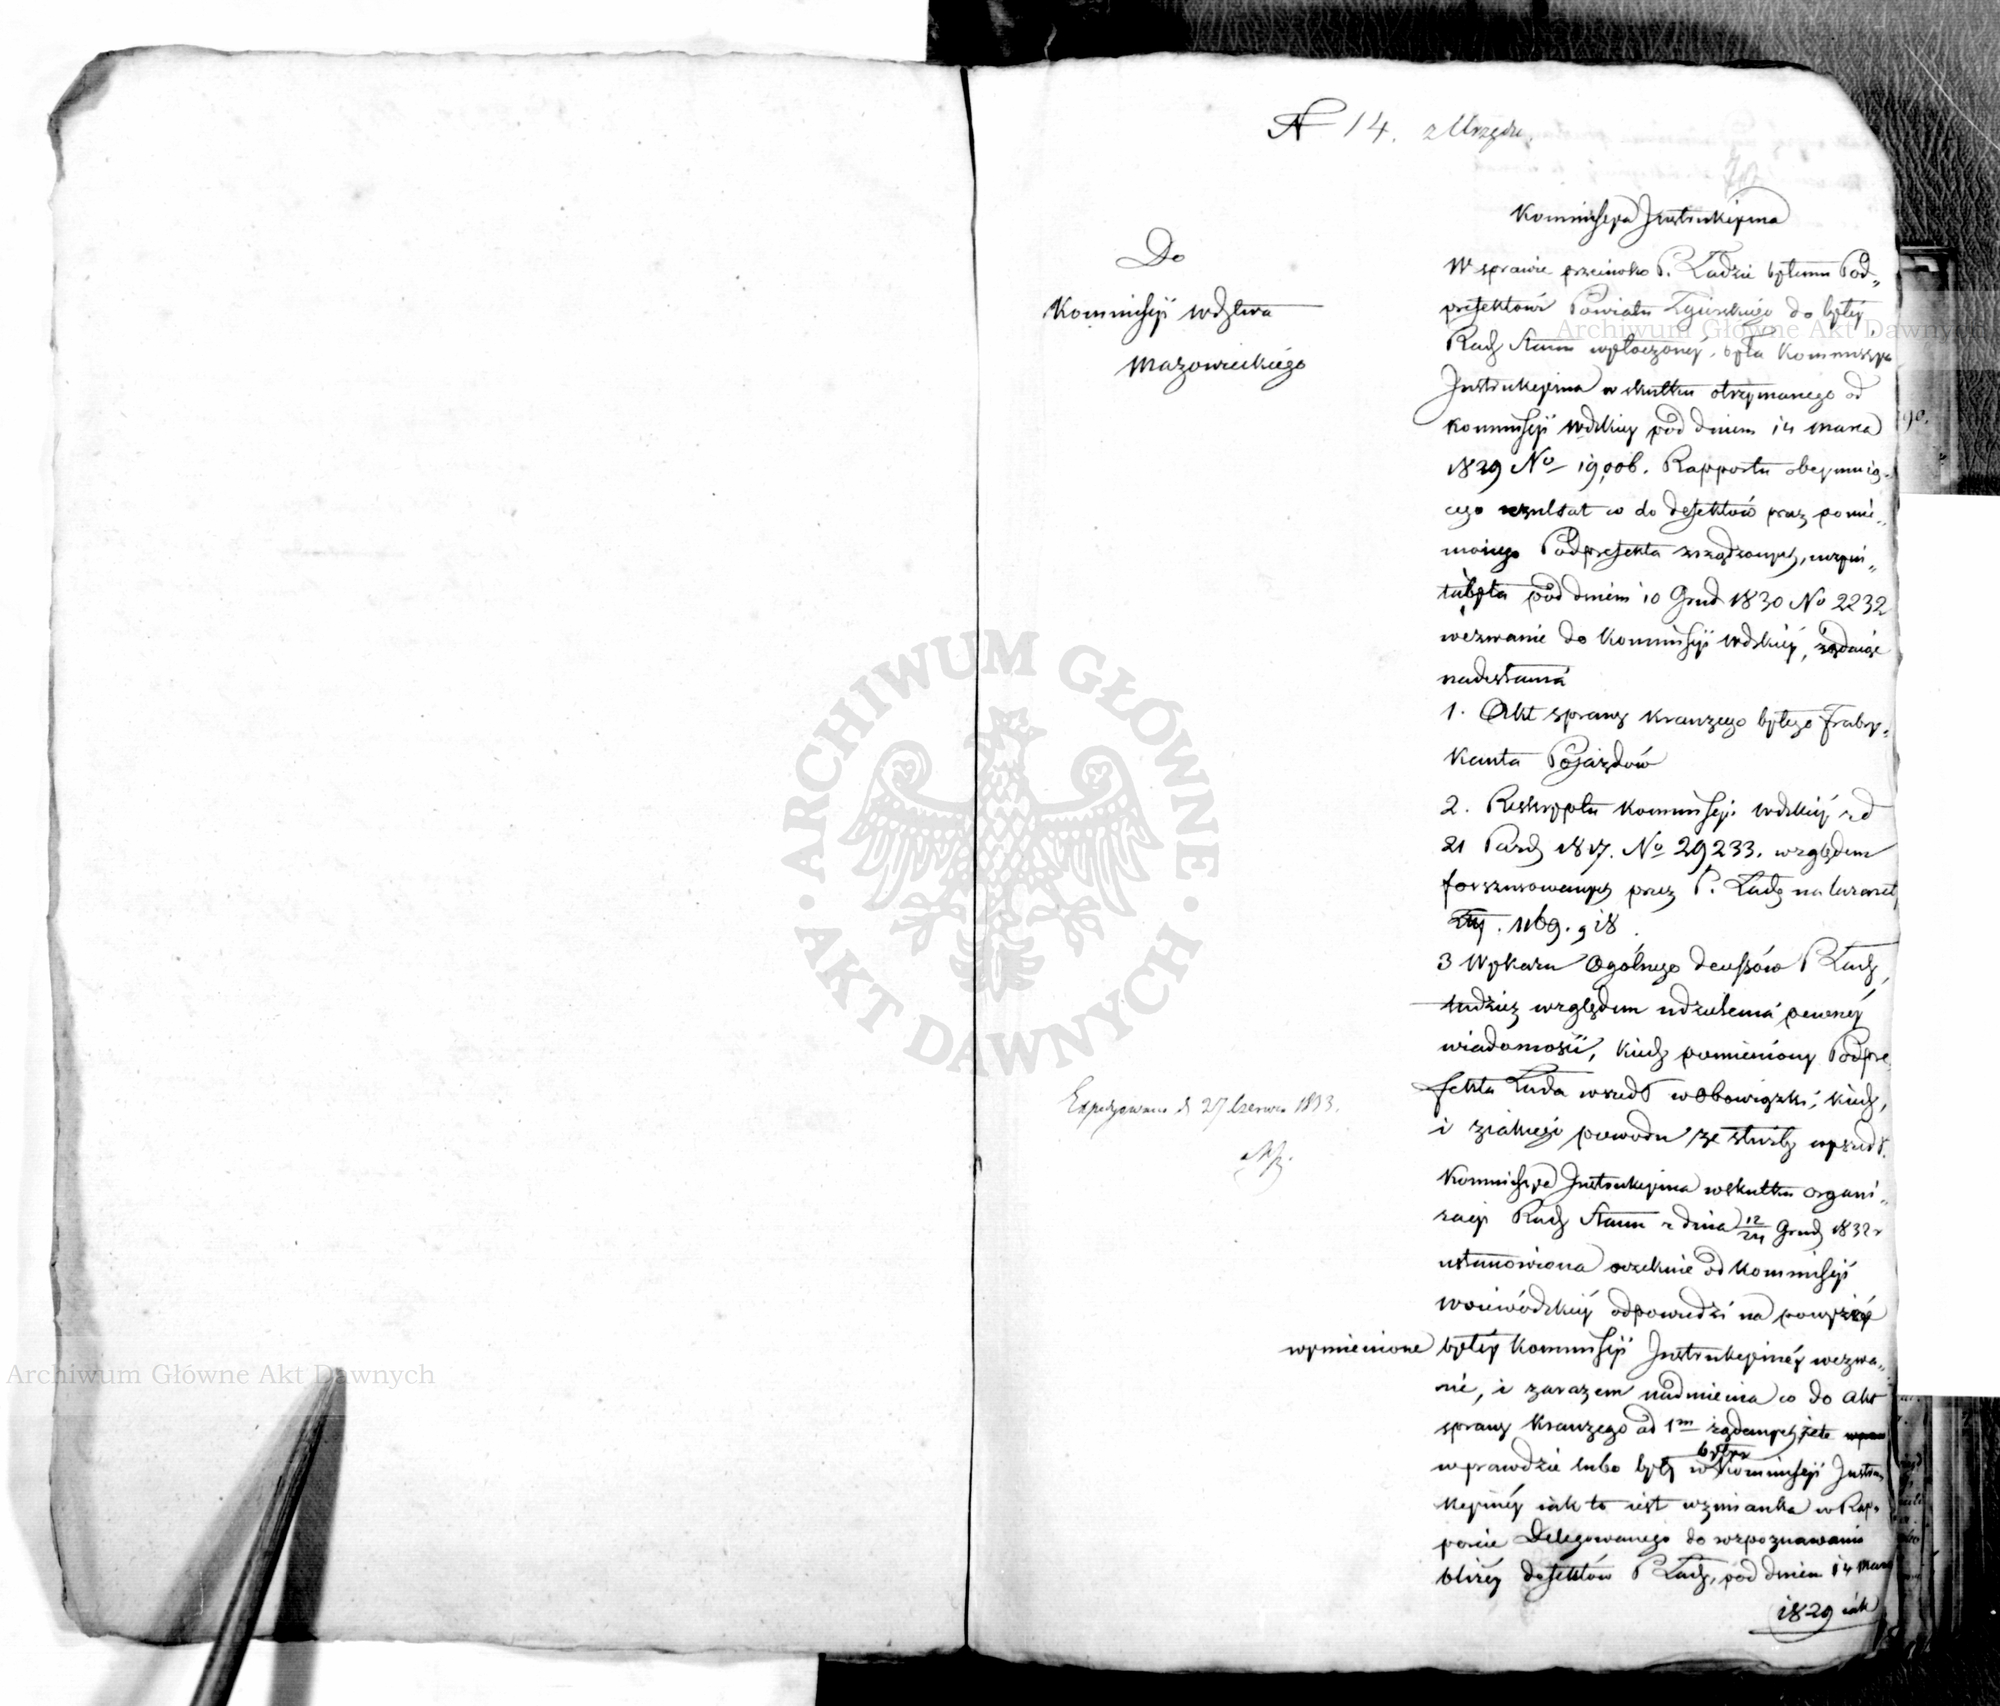 N 14. z Urzędu.
70
Kommissya Instrukcyina
Do
Kommissyi Wdztwa
Mazowieckiego
W sprawie przeciwko P. Ładzie byłemu Pod„
prefektowi Powiatu Zgierskiego do byłéy
Rady Stanu wytoczonéy, była Kommissya
Instrukcyina w skutku otrzymanego od
Kommissyi Wdzkiey pod dniem 14 Marca
1829 No 19,006. Rapportu obeymuią„
cego rezultat co do defektów przez pomie„
nionego Podprefekta zrządzonych, uczyni„
ła była pod dniem 10 Grud 1830 No 2232
wezwanie do Kommissyi Wdzkiéy, żądaiąc
nadesłania
1. Akt sprawy Kranzego byłego Fabry„
kanta Pojazdów
2. Reskryptu Kommissyi Wdzkiéy z d
21 Paźdz 1817. No 29233. względem
forszusowanych przez P. Ładę na lazaret
Złp. 1169. g 18.
3 Wykazu Ogólnego decessów P Łady,
tudzież względem udzielenia pewnéy
wiadomości, kiedy pomieniony Podpre
fekta Łada wszedł w obowiązki, kiedy,
i z iakiego powodu ze służby wyszedł.
Expedyowano d 27 Czerwca 1833.
Kommissya Instrukcyina w skutku organi„
zacyi Rady Stanu z dnia 12/24 Grud 1832 r
ustanowiona oczekuie od Kommissyi
Woiewódzkiéy odpowiedzi na powyżéy
wymienione byłéy Kommissyi Instrukcyinéy wezwa„
nie, i zarazem nadmienia co do akt
sprawy Kranzego ad 1m żądanych, że te
byłéy
wprawdzie lubo były w Kommissyi Instru„
kcyinéy iak to iest wzmianka w Rap„
porcie Delegowanego do rozpoznawania
bliżéy defektów P Łady, pod dniem 14 Marca
1829 iak
Archiwum Główne Akt Dawnych
Archiwum Główne Akt Dawnych
ARCHIWUM GŁÓWNE · AKT DAWNYCH ·